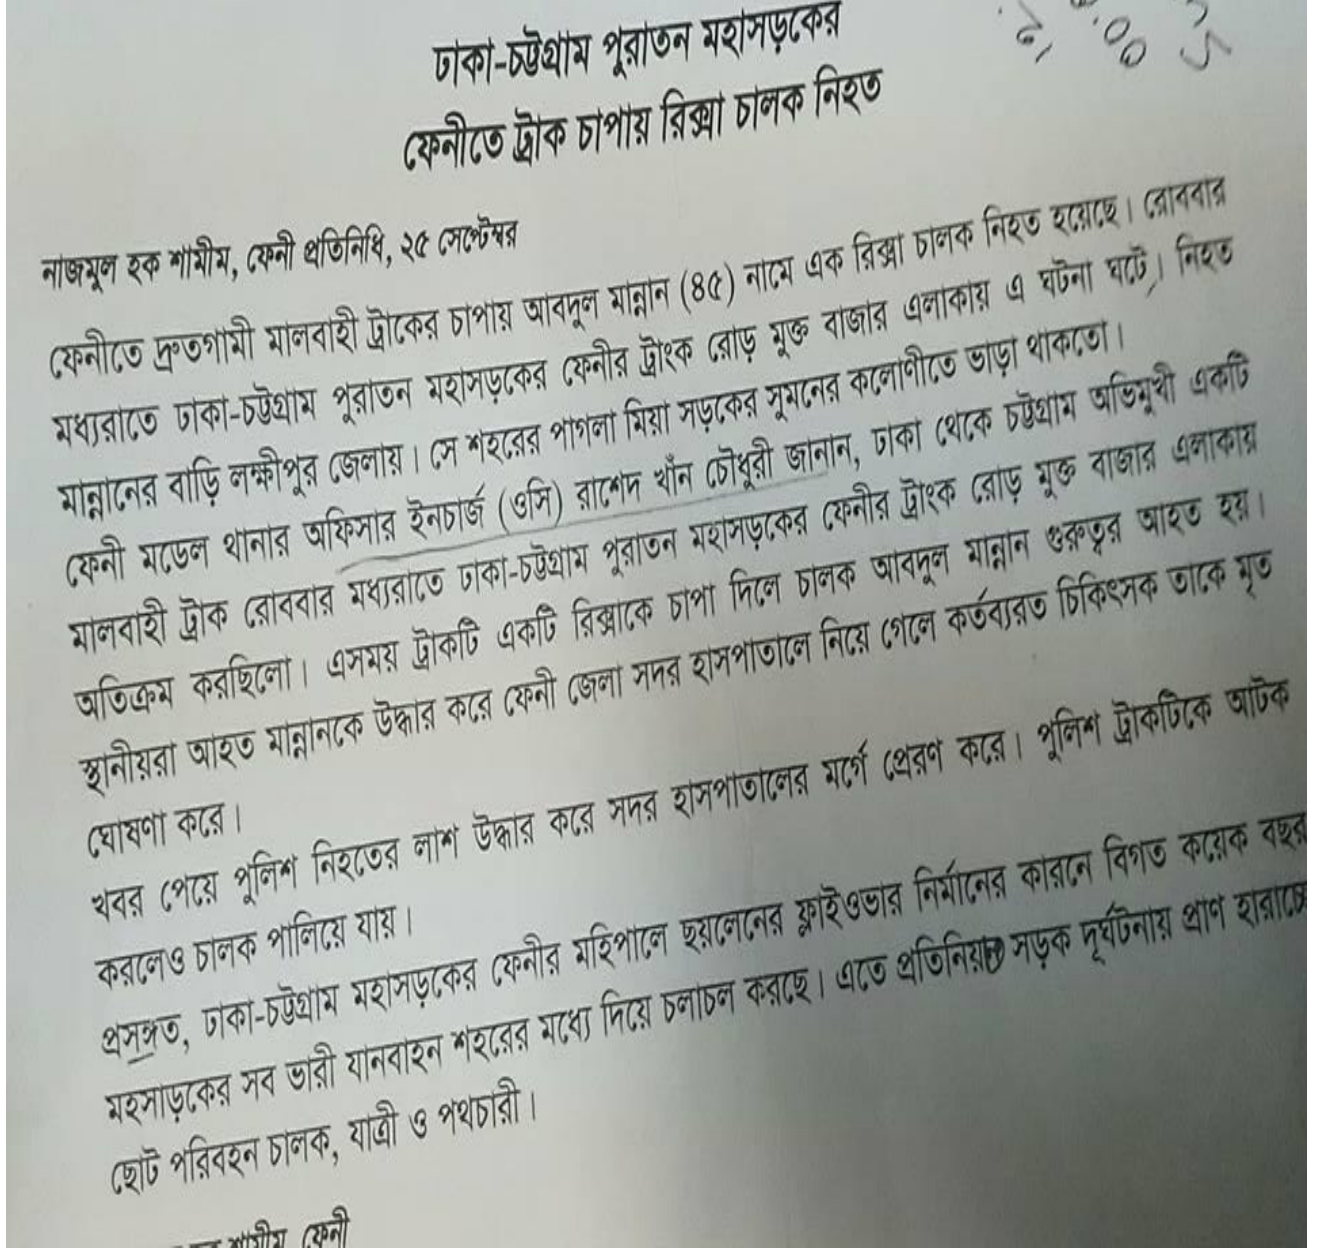 ঢাকা-চট্টগ্রাম পুরাতন মহাসড়কের
ফেনীতে ট্রাক চাপায় রিক্সা চালক নিহত
নাজমুল হক শামীম, ফেনী প্রতিনিধি, ২৫ সেপ্টেম্বর
ফেনীতে দ্রুতগামী মালবাহী ট্রাকের চাপায় আবদুল মান্নান (৪৫) নামে এক রিক্সা চালক নিহত হয়েছে। রোববার
মধ্যরাতে ঢাকা-চট্টগ্রাম পুরাতন মহাসড়কের ফেনীর ট্রাংক রোড় মুক্ত বাজার এলাকায় এ ঘটনা ঘটে। নিহত
মান্নানের বাড়ি লক্ষীপুর জেলায়। সে শহরের পাগলা মিয়া সড়কের সুমনের কলোণীতে ভাড়া থাকতো।
ফেনী মডেল থানার অফিসার ইনচার্জ (ওসি) রাশেদ খাঁন চৌধুরী জানান, ঢাকা থেকে চট্টগ্রাম অভিমুখী একটি
মালবাহী ট্রাক রোববার মধ্যরাতে ঢাকা-চট্টগ্রাম পুরাতন মহাসড়কের ফেনীর ট্রাংক রোড় মুক্ত বাজার এলাকায়
অতিক্রম করছিলো। এসময় ট্রাকটি একটি রিক্সাকে চাপা দিলে চালক আবদুল মান্নান গুরুত্বর আহত হয়।
স্থানীয়রা আহত মান্নানকে উদ্ধার করে ফেনী জেলা সদর হাসপাতালে নিয়ে গেলে কর্তব্যরত চিকিৎসক তাকে মৃত
ঘোষণা করে।
খবর পেয়ে পুলিশ নিহতের লাশ উদ্ধার করে সদর হাসপাতালের মর্গে প্রেরণ করে। পুলিশ ট্রাকটিকে আটক
করলেও চালক পালিয়ে যায়।
প্রসঙ্গত, ঢাকা-চট্টগ্রাম মহাসড়কের ফেনীর মহিপালে ছয়লেনের ফ্লাইওভার নির্মানের কারনে বিগত কয়েক বছর
মহসাড়কের সব ভারী যানবাহন শহরের মধ্যে দিয়ে চলাচল করছে। এতে প্রতিনিয়ত সড়ক দূর্ঘটনায় প্রাণ হারাচ্ছে
ছোট পরিবহন চালক, যাত্রী ও পথচারী।
শামীম ফেনী